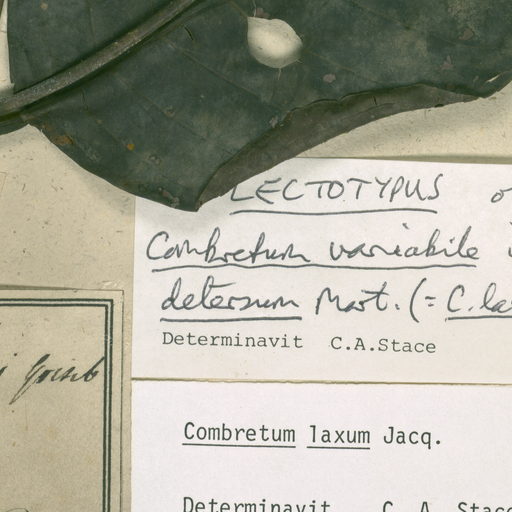 LECTOTYPUS
Combretum variabile
detersum Mart. (= C. la
Determinavit C.A.Stace
Griseb
Combretum laxum Jacq.
Determinavit C. A. Stace